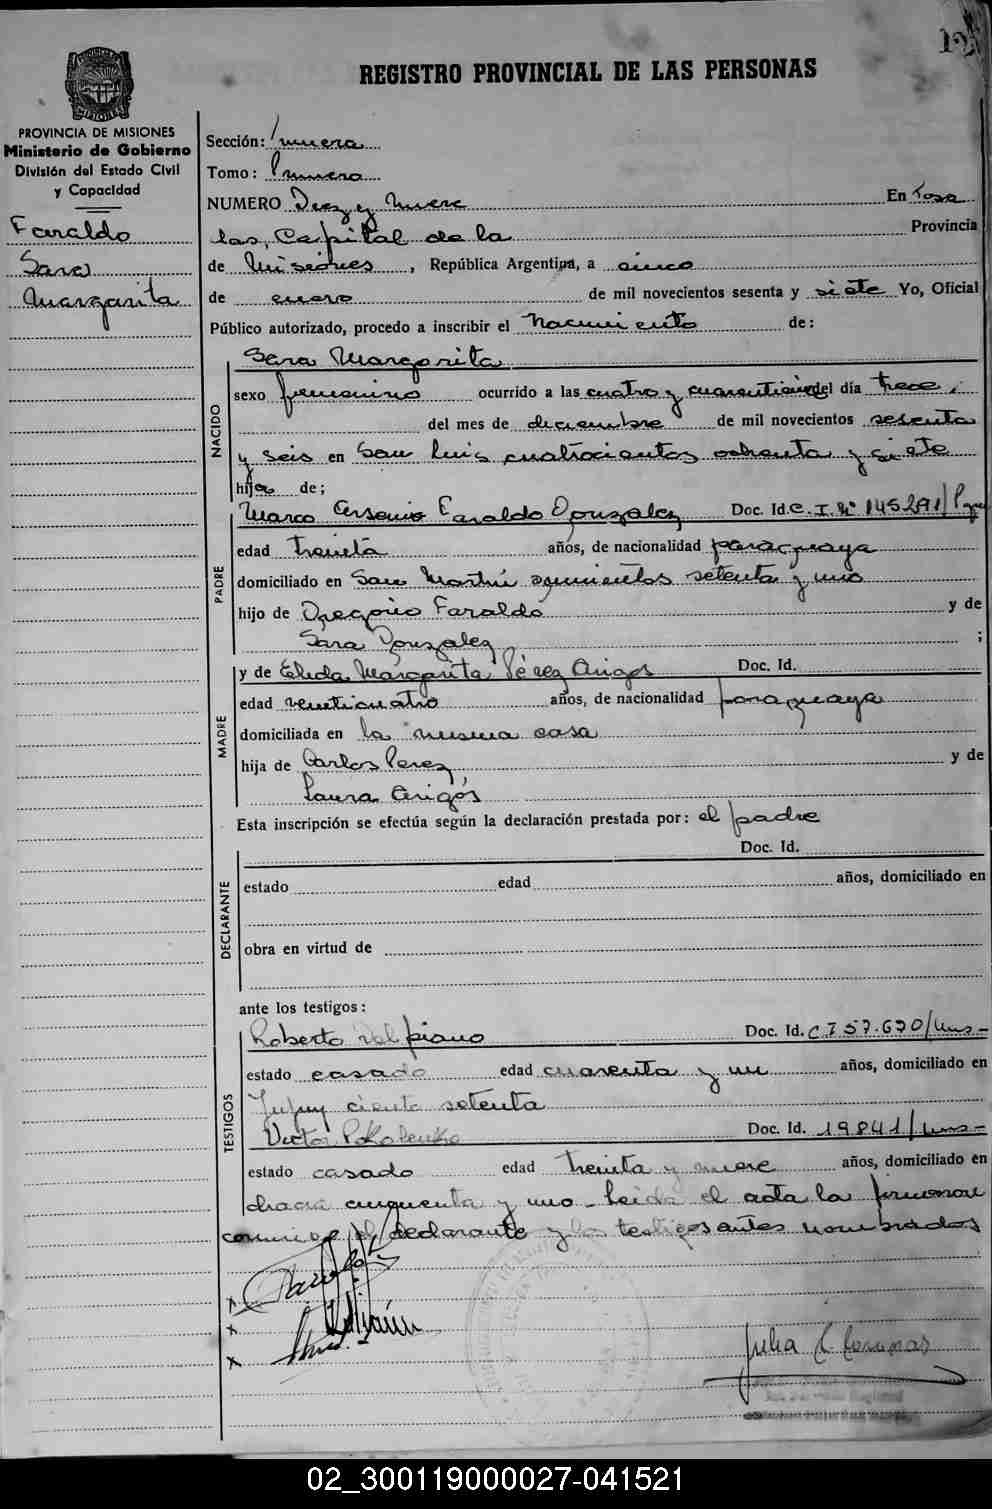 REGISTRO PROVINCIAL DE LAS PERSONAS
PROVINCIA DE MISIONES
Ministerio de Gobierno
División del Estado Civil
y Capacidad
Faraldo
Sara
Margarita
Sección: Primera
Tomo: Primero
NUMERO Diez y nueve En Posa
das, Capital de la Provincia
de Misiones, República Argentina, a cinco
de enero de mil novecientos sesenta y siete Yo, Oficial
Público autorizado, procedo a inscribir el Nacimiento de:
NACIDO
Sara Margarita
sexo femenino ocurrido a las cuatro y cuarenticinco del día trece
del mes de diciembre de mil novecientos sesenta
y seis en San Luis cuatrocientos ochenta y siete
hija de;
PADRE
Marco Arsenio Faraldo Gonzalez Doc. Id. C. I. Nº 145291/Pgy
edad treinta años, de nacionalidad paraguaya
domiciliado en San Martín quinientos setenta y uno
hijo de Gregorio Faraldo y de
Sara Gonzalez ;
MADRE
y de Elida Margarita Pérez Arigos Doc. Id.
edad veinticuatro años, de nacionalidad paraguaya
domiciliada en la misma casa
hija de Carlos Perez y de
Laura Arigós
Esta inscripción se efectúa según la declaración prestada por: el padre
Doc. Id.
DECLARANTE
estado edad años, domiciliado en
obra en virtud de
ante los testigos:
TESTIGOS
Roberto Delpiano Doc. Id. C I 57.690/Mns-
estado casado edad cuarenta y un años, domiciliado en
Jujuy ciento setenta
Victor Doc. Id. 19841/Mns-
estado casado edad treinta y nueve años, domiciliado en
chacra cincuenta y uno - Leida el acta la firmaron
conmigo el declarante y los testigos antes nombrados
x
x
x
Julia
02_300119000027-041521